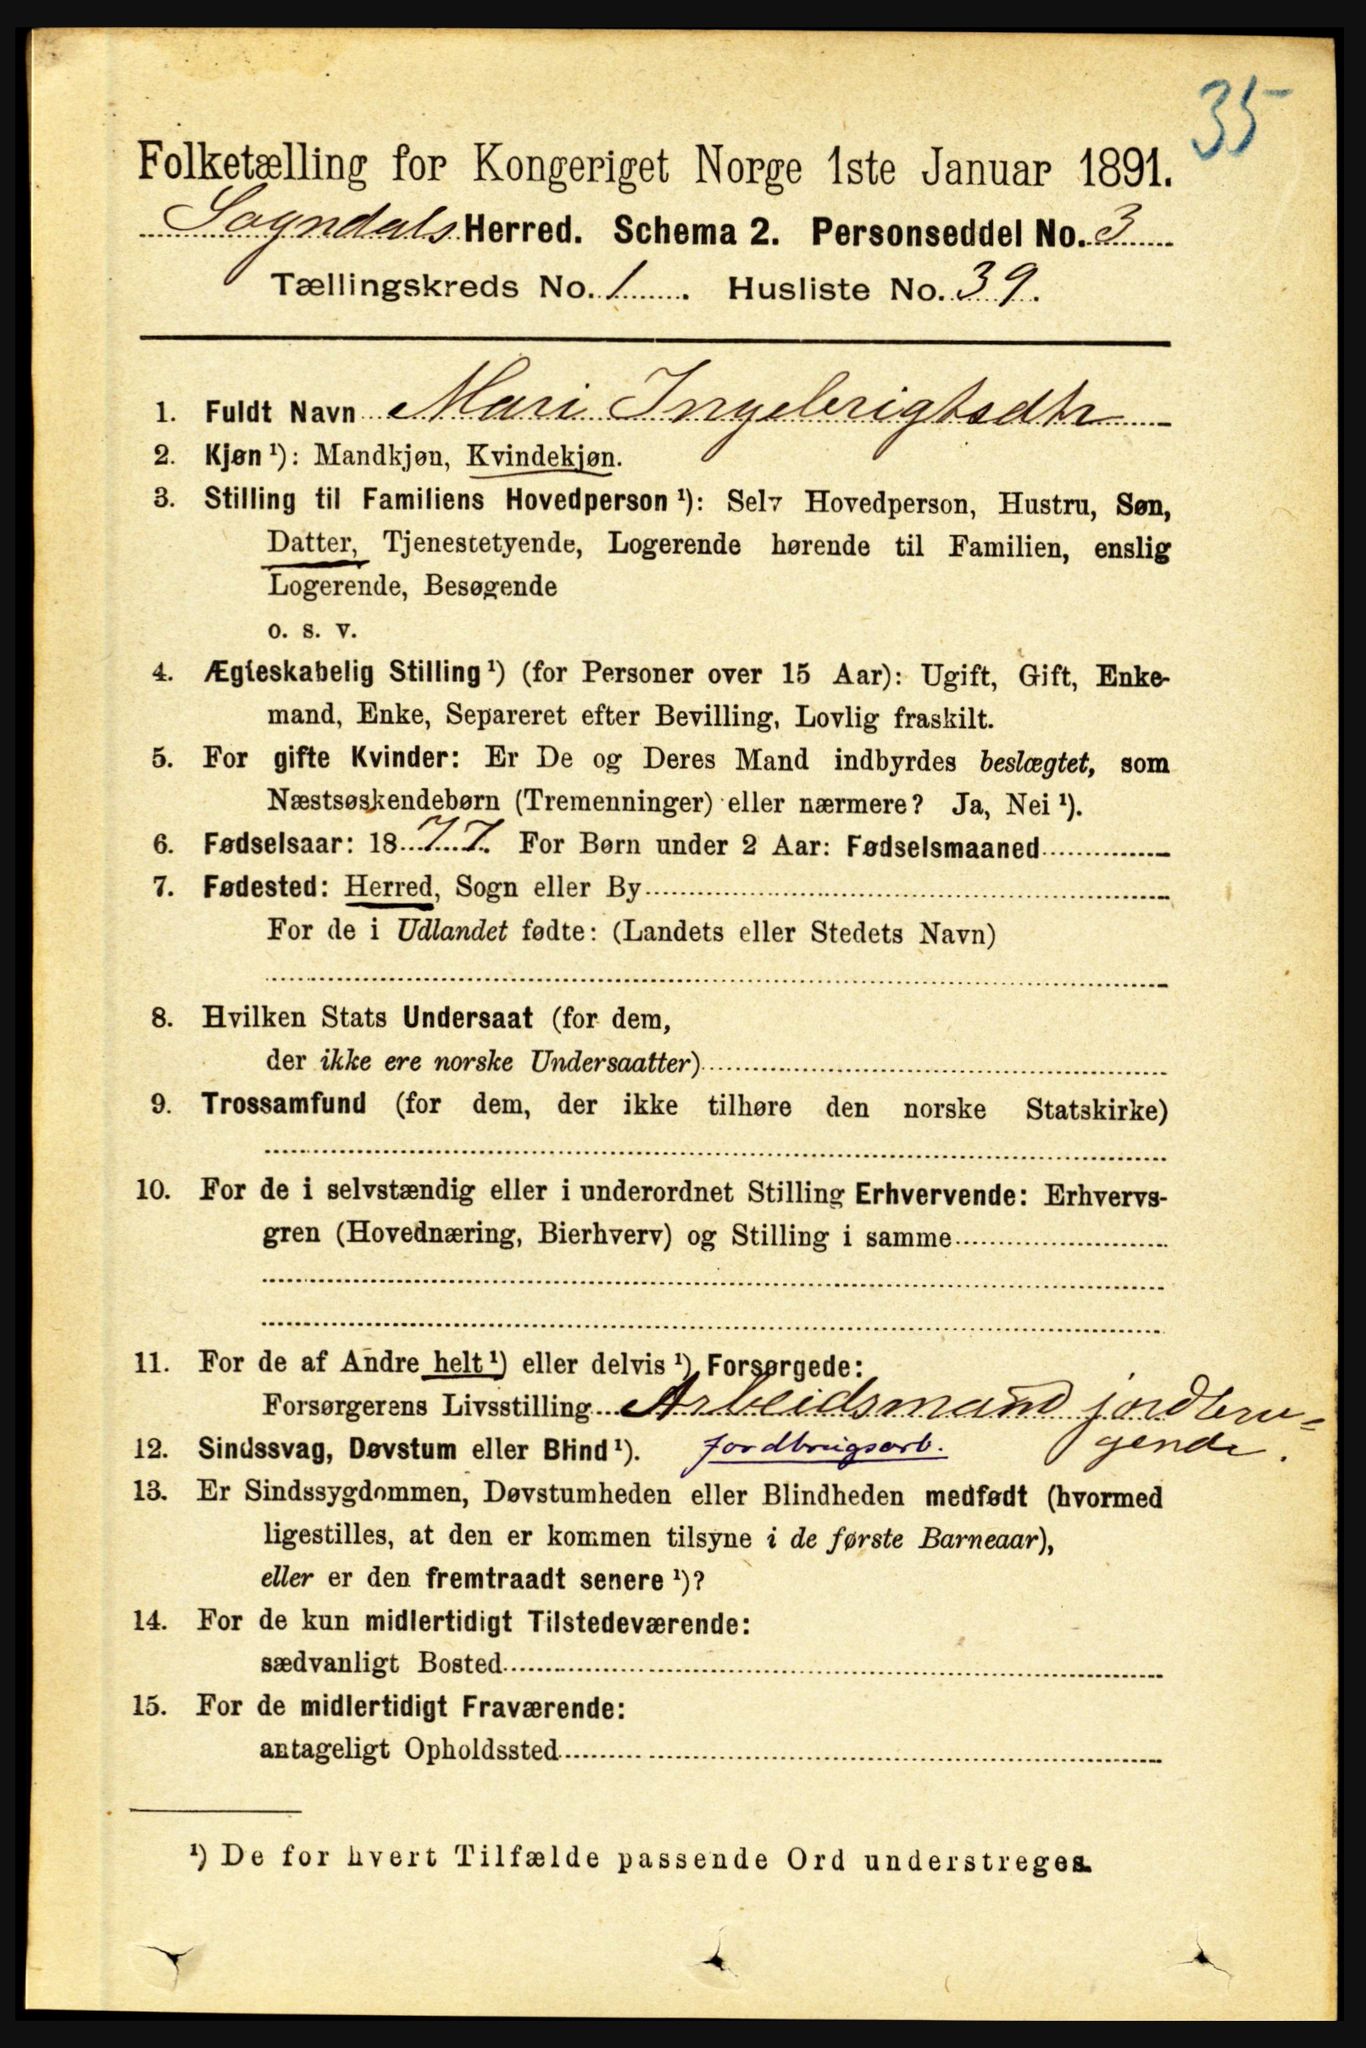 35
Folketælling for Kongeriget Norge 1ste Januar 1891.
Sogndals Herred. Schema 2. Personseddel No. 3
Tællingskreds No. 1. Husliste No. 39.
1. Fuldt Navn Mari Ingebrigtsdtr
2. Kjøn ¹): Mandkjøn, Kvindekjøn.
3. Stilling til Familiens Hovedperson ¹): Selv Hovedperson, Hustru, Søn,
Datter, Tjenestetyende, Logerende hørende til Familien, enslig
Logerende, Besøgende
o. s. v.
4. Ægteskabelig Stilling ¹) (for Personer over 15 Aar): Ugift, Gift, Enke-
mand, Enke, Separeret efter Bevilling, Lovlig fraskilt.
5. For gifte Kvinder: Er De og Deres Mand indbyrdes beslægtet, som
Næstsøskendebørn (Tremenninger) eller nærmere? Ja, Nei ¹).
6. Fødselsaar: 1877. For Børn under 2 Aar: Fødselsmaaned
7. Fødested: Herred, Sogn eller By
For de i Udlandet fødte: (Landets eller Stedets Navn)
8. Hvilken Stats Undersaat (for dem,
der ikke ere norske Undersaatter)
9. Trossamfund (for dem, der ikke tilhøre den norske Statskirke)
10. For de i selvstændig eller i underordnet Stilling Erhvervende: Erhvervs-
gren (Hovednæring, Bierhverv) og Stilling i samme
11. For de af Andre helt ¹) eller delvis ¹) Forsørgede:
Forsørgerens Livsstilling Arbeidsmand jordbru=
12. Sindssvag, Døvstum eller Blind ¹). jordbrugsarb. gende.
13. Er Sindssygdommen, Døvstumheden eller Blindheden medfødt (hvormed
ligestilles, at den er kommen tilsyne i de første Barneaar),
eller er den fremtraadt senere ¹)?
14. For de kun midlertidigt Tilstedeværende:
sædvanligt Bosted
15. For de midlertidigt Fraværende:
antageligt Opholdssted
¹) De for hvert Tilfælde passende Ord understreges.